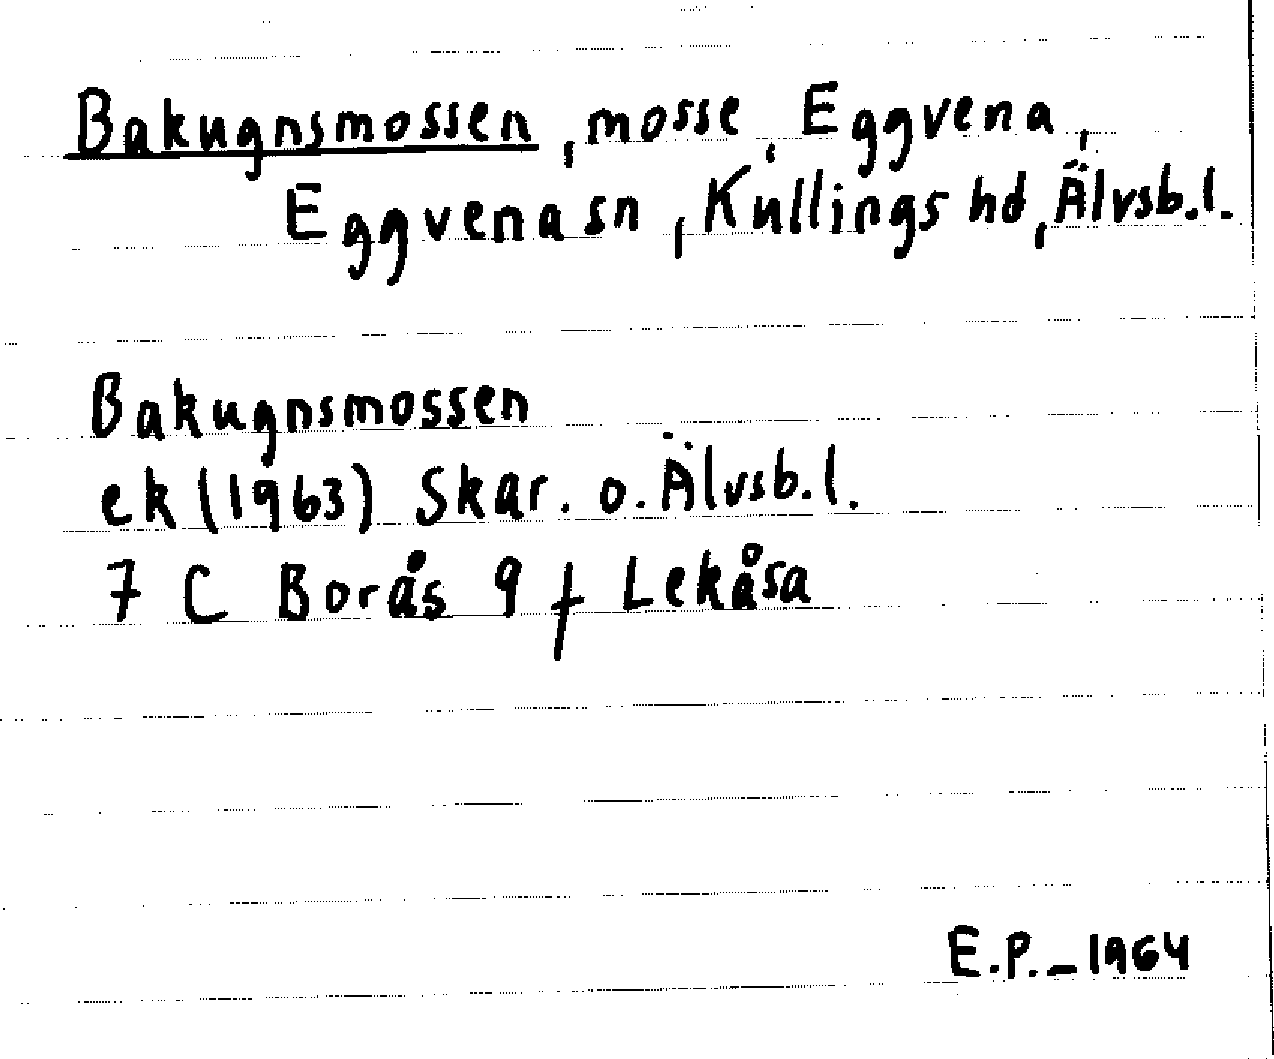 Bakugnsmossen, mosse, Eggvena,
Eggvena sn, Kullings hd, Älvsb. l.
Bakugnsmossen
ek (1963) Skar. o. Älvsb. l.
7 C Borås 9 f Lekåsa
E.P. - 1964